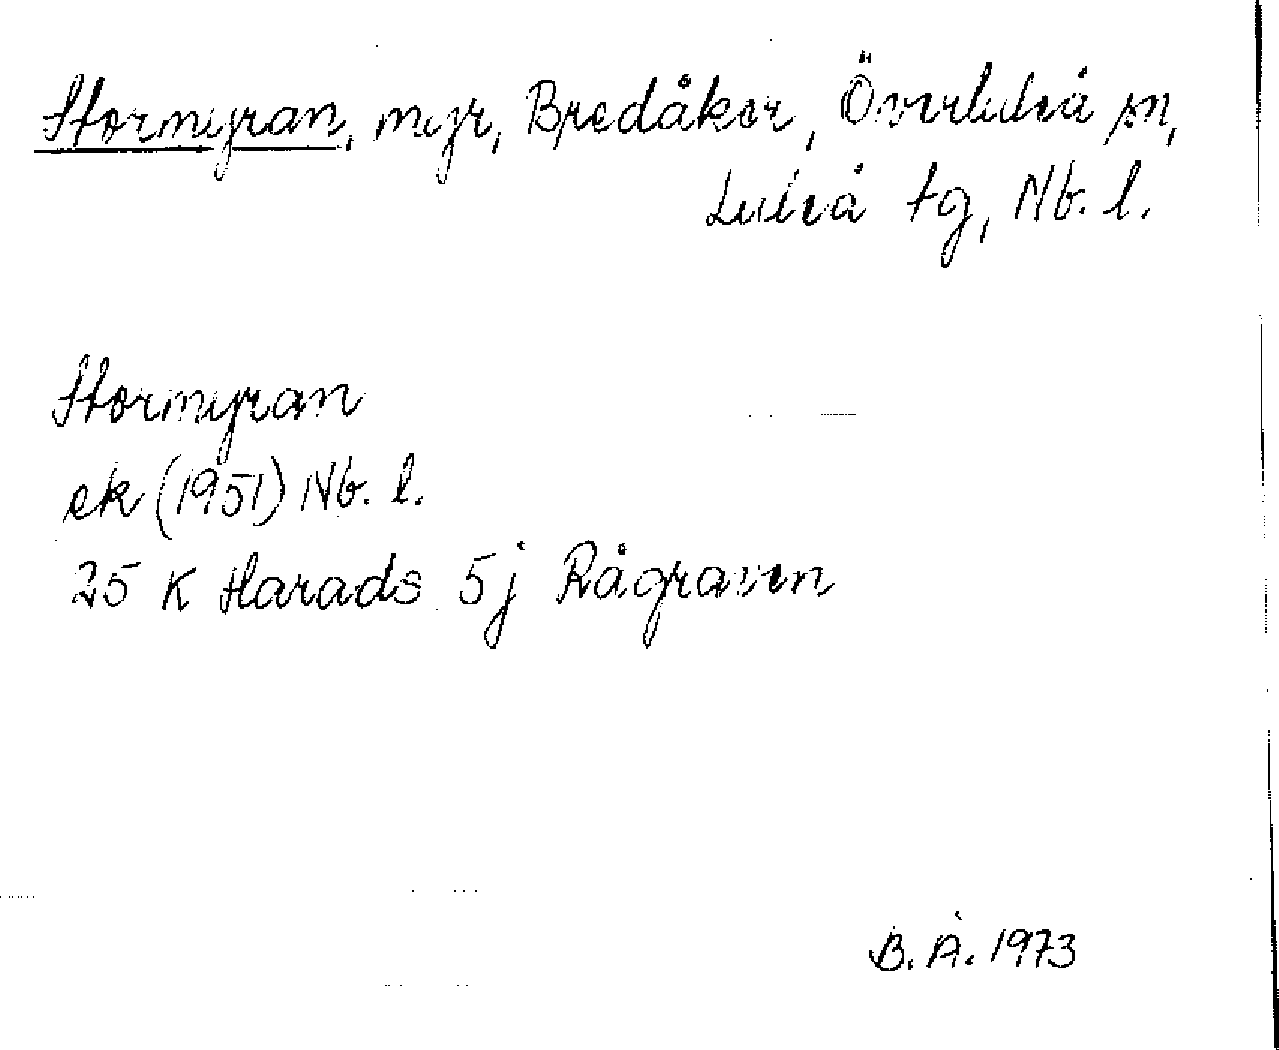 Stormyran, myr, Bredåker, Överluleå sn,
Luleå tg, Nb. l.
Stormyran
ek (1951) Nb. l.
25 K Harads 5j Rågraven
B. Å. 1973